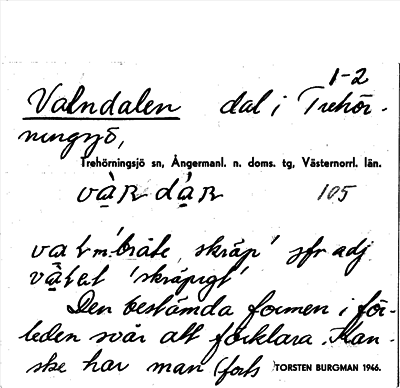 1-2
Valndalen dal i Trehör-
ningsjö,
Trehörningsjö sn, Ångermanl. n. doms. tg, Västernorrl. län.
105
bråte, skräp' jfr adj
'skräpigt'
Den bestämda formen i för-
leden svår att förklara. Kan-
ske har man (fots
TORSTEN BURGMAN 1946.